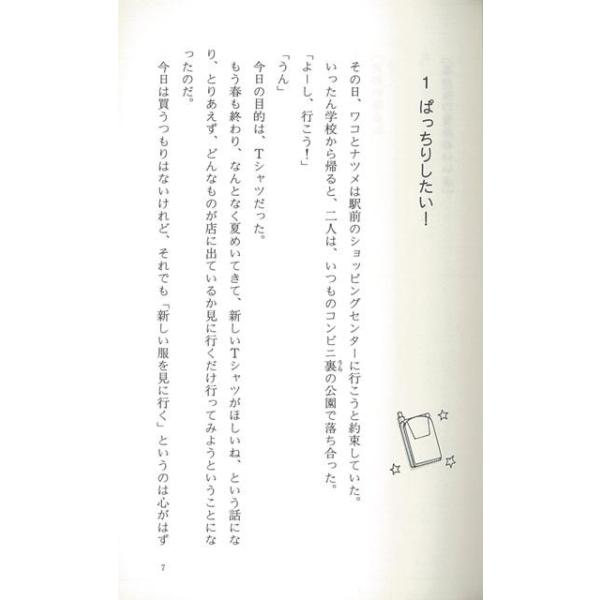 1 ぱっちりしたい！
その日、ワコとナツメは駅前のショッピングセンターに行こうと約束していた。
いったん学校から帰ると、二人は、いつものコンビニ裏の公園で落ち合った。
「よーし、行こう！」
「うん」
今日の目的は、Ｔシャツだった。
もう春も終わり、なんとなく夏めいてきて、新しいＴシャツがほしいね、という話にな
り、とりあえず、どんなものが店に出ているか見に行くだけ行ってみようということにな
ったのだ。
今日は買うつもりはないけれど、それでも「新しい服を見に行く」というのは心がはず
7